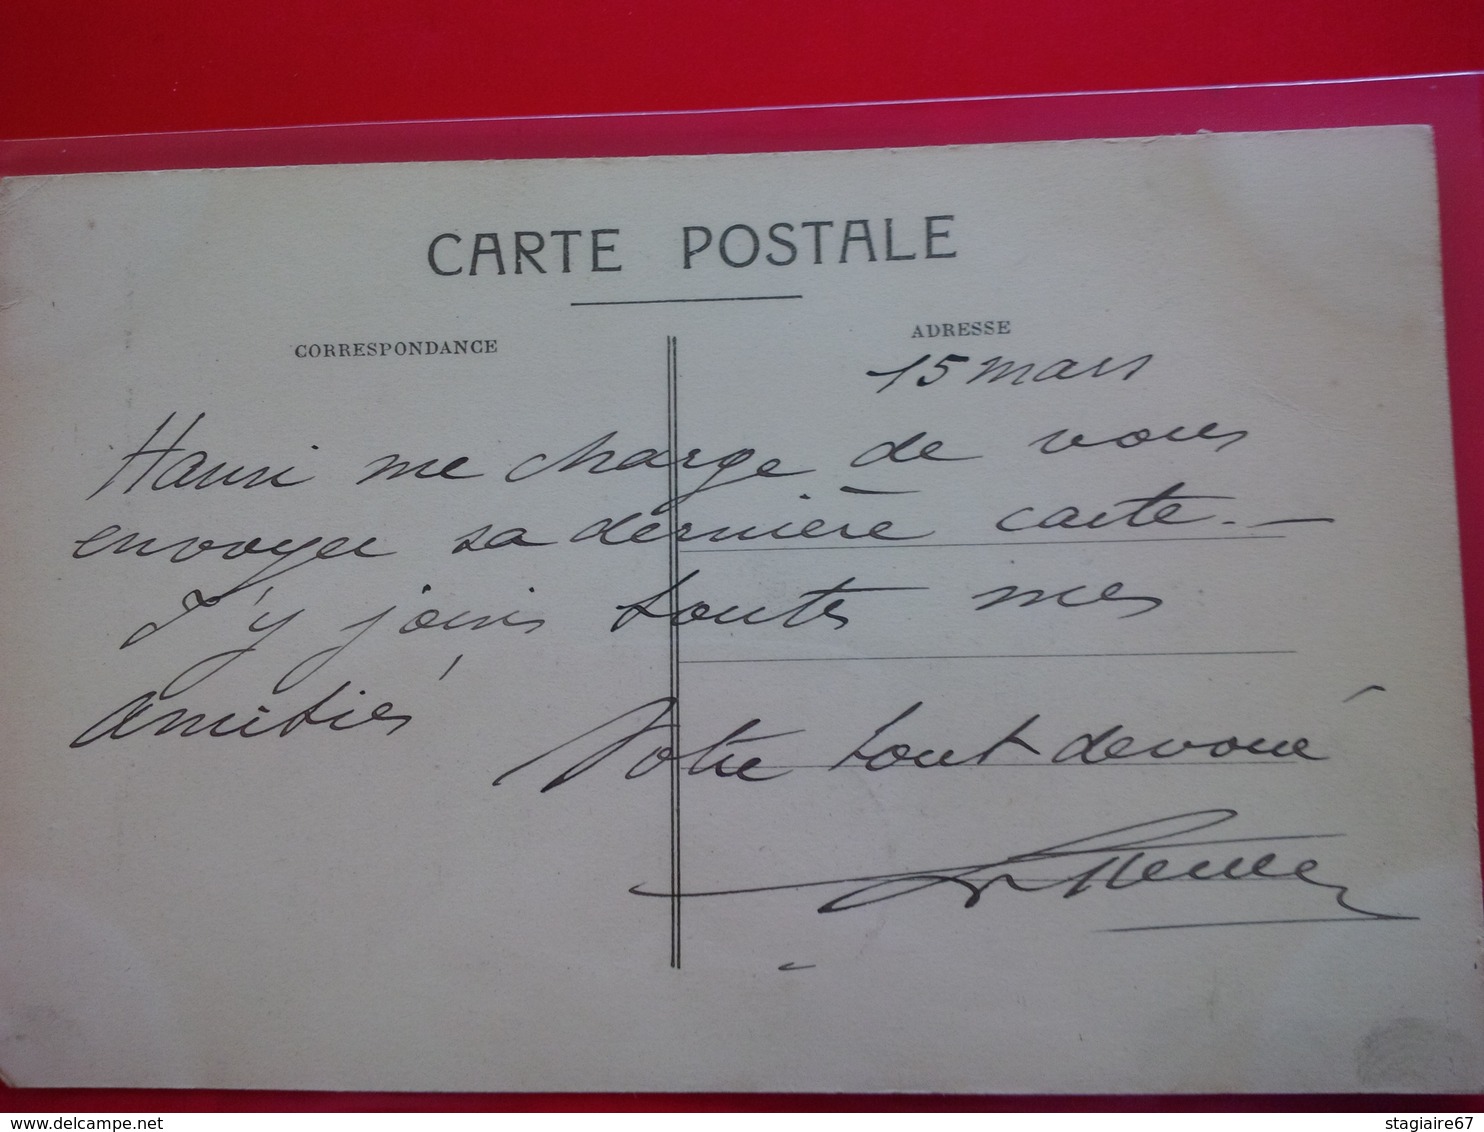 CARTE POSTALE
CORRESPONDANCE
ADRESSE
15 mars
Hansi me charge de vous
envoyer sa dernière carte. —
J'y joins toutes mes
amitiés
Votre tout devoué
delcampe.net
stagiaire67